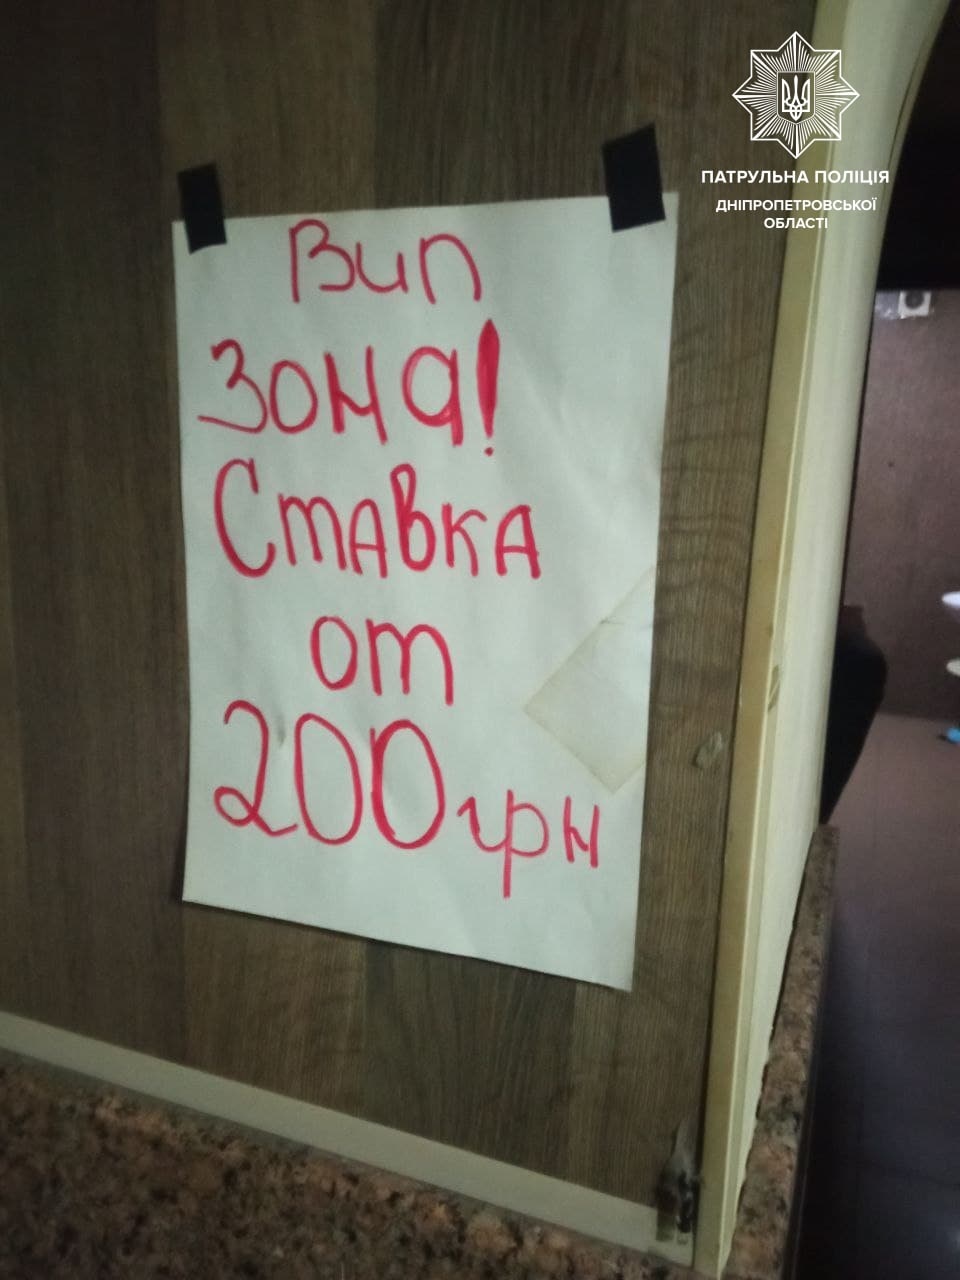 ПАТРУЛЬНА ПОЛІЦІЯ
ДНІПРОПЕТРОВСЬКОЇ
ОБЛАСТІ
Вип
Зона!
Ставка
от
200грн